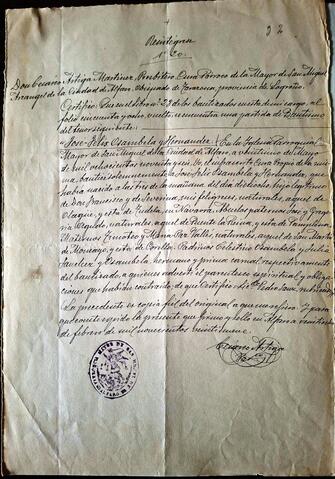 32
Reintegra
n.º 20.
Don Genaro Artiga Martinez, Presbitero Cura Párroco de la Mayor de San Miguel
Arcangel de la Ciudad de Alfaro, Obispado de Tarazona, provincia de Logroño.
Certifico: Que en el Libro 23 de los bautizados de esta de mi cargo, al
folio cincuenta y ocho, vuelto, se encuentra una partida de Bautismo
del tenor siguiente:
"José Felix Osambela y Hernandez. En la Iglesia Parroquial
Mayor de San Miguel de la Ciudad de Alfaro, a de Mayo
de mil ochocientos noventa y Yo, el infrascrito Cura propio de la mis-
ma, bauticé solemnemente a José Felix Osambela y Hernandez, que
había nacido a las tres de la mañana del día dieciocho, hijo legitimo
de Don Francisco y de Severina, mis feligreses, naturales, aquel de
Olagüe, y esta de Tudela, en Navarra. Abuelos paternos José y Gra-
cia naturales, aquel de Puente la Reina, y esta de Pamplona.
Maternos Ernesto y Maria naturales, aquel de San Martin
de Moncayo, y esta de Corella. Padrinos Celestino Osambela y
Sanchez y Osambela, hermano y primo carnal respectivamente
del bautizado, a quienes advertí el parentesco espiritual y obliga-
ciones que habían contraido, de que certifico = Lic. Pedro
La precedente es copia fiel del original a que me refiero. Y para
que conste expido la presente que firmo y sello en Alfaro a veintiseis
de febrero de mil novecientos veintinueve.
Genaro Artiga